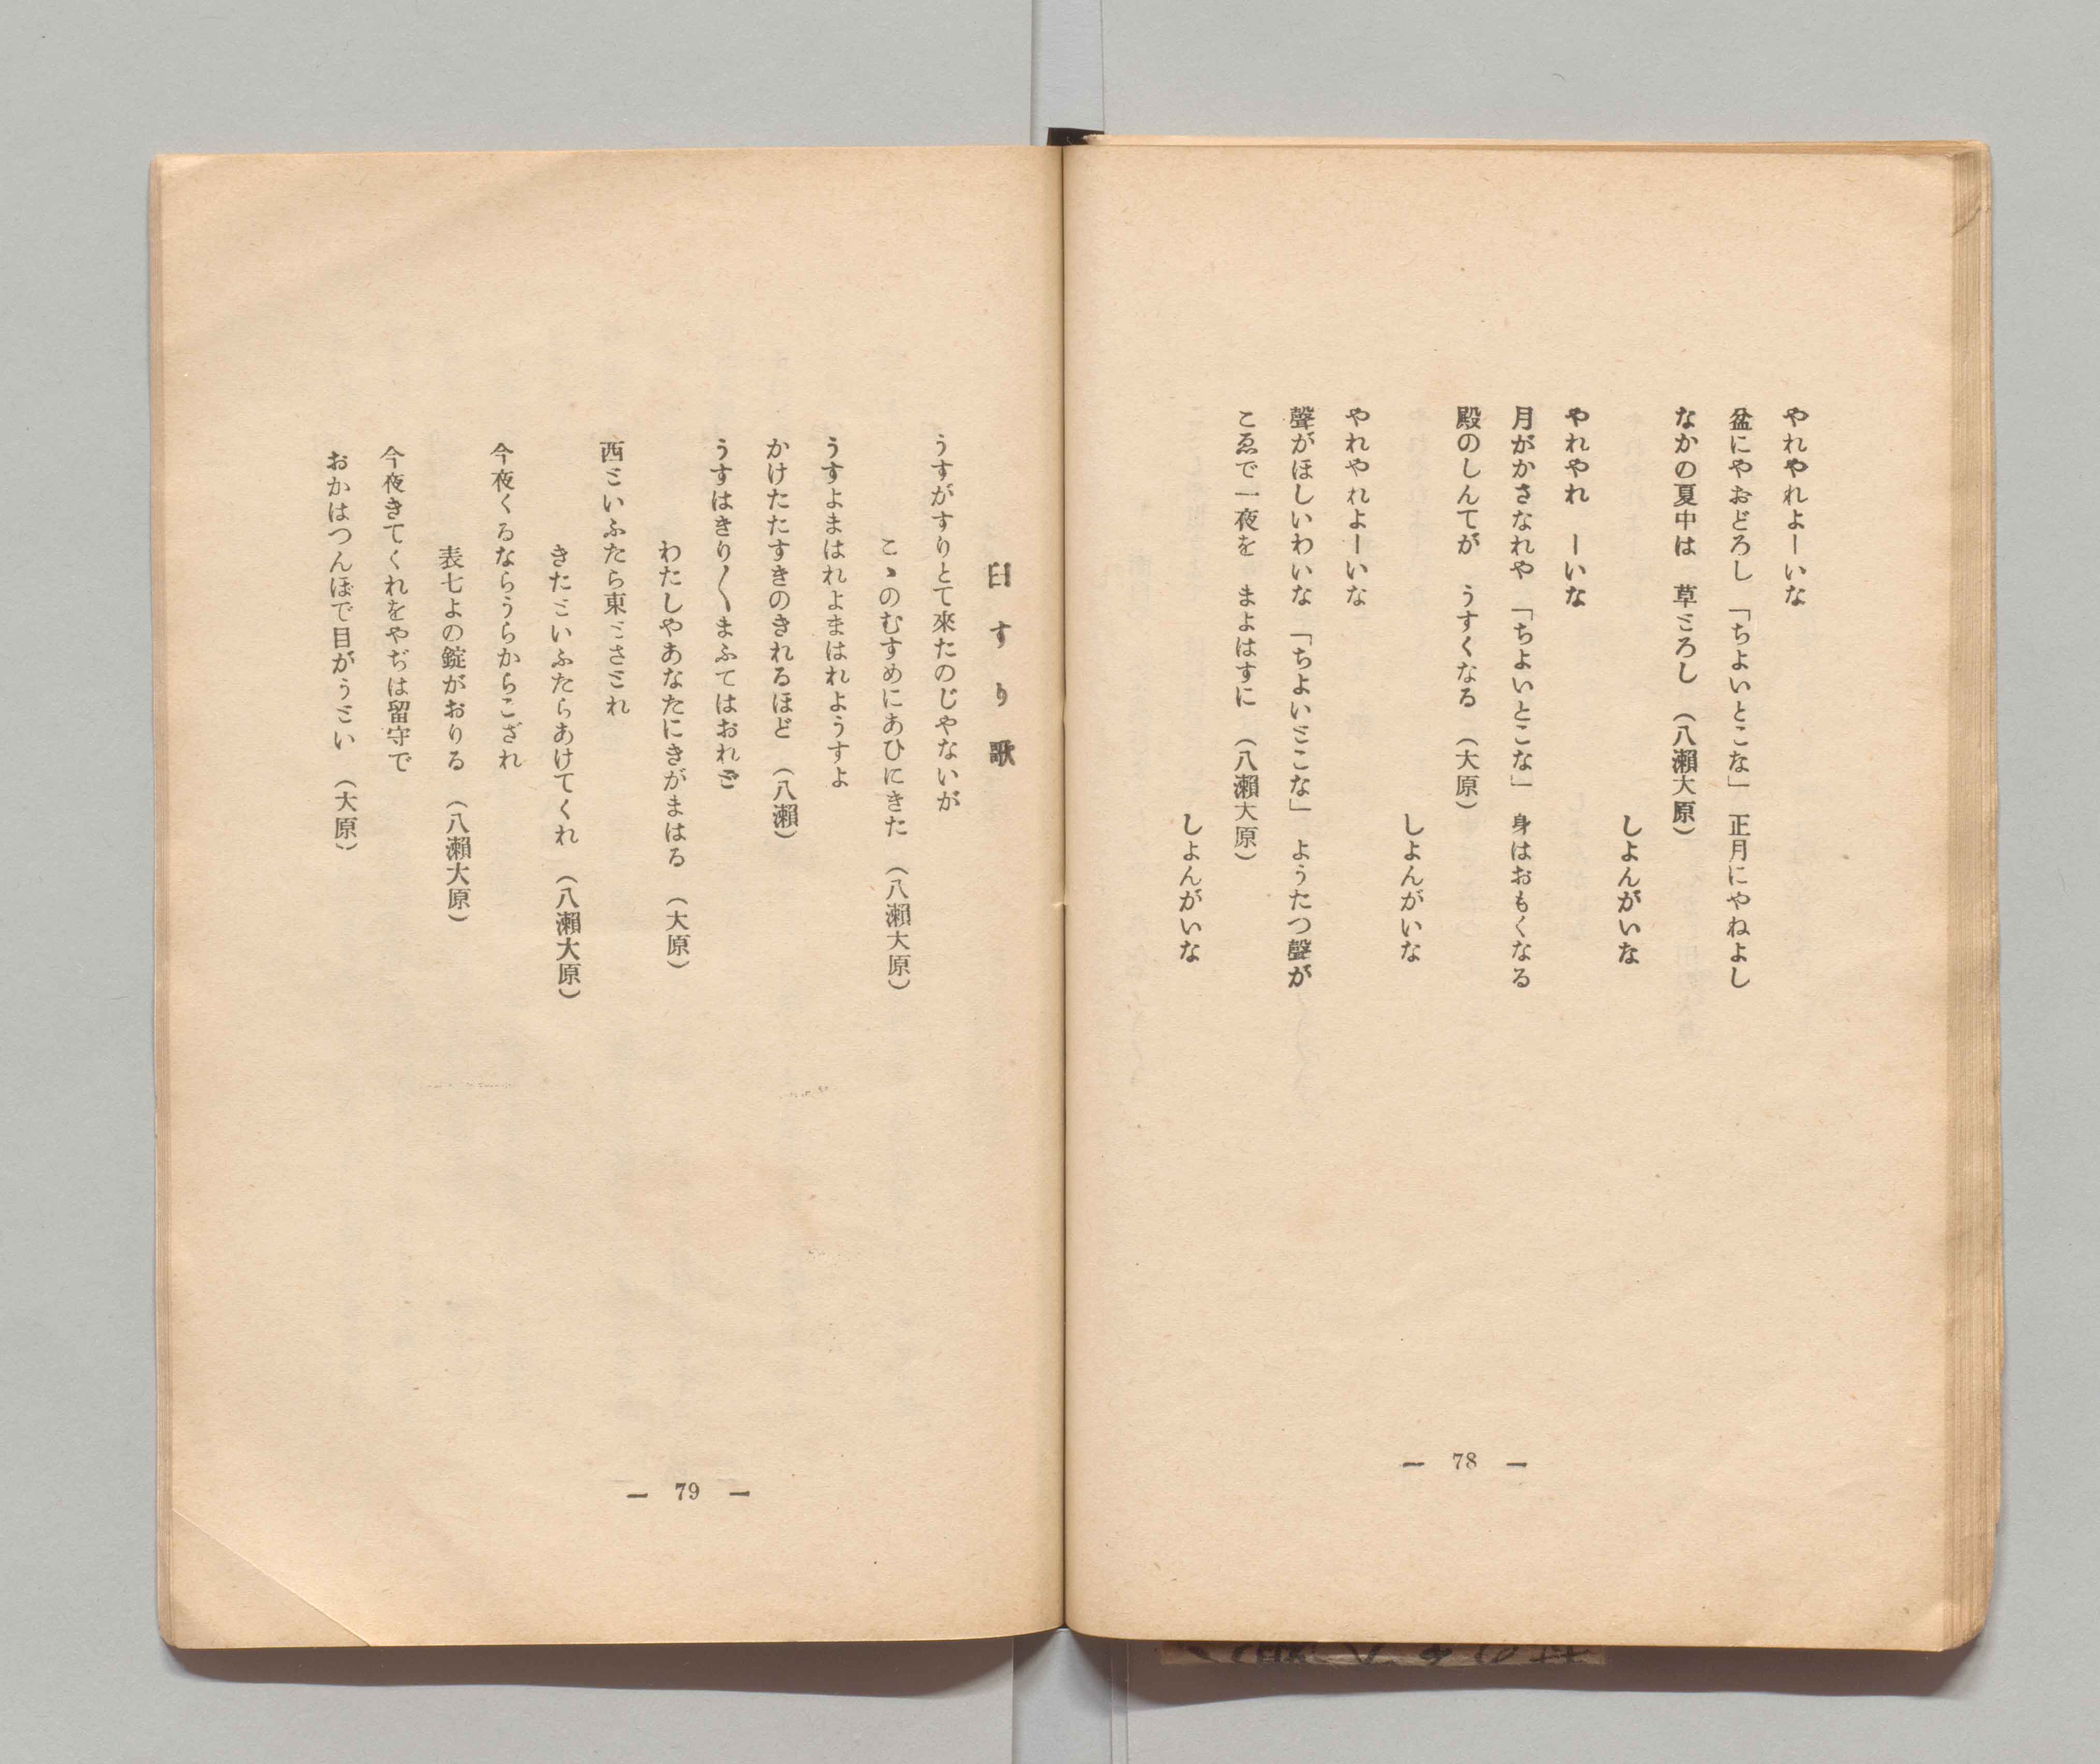 やれやれよーいな
盆にやおどろし　「ちよいとこな」　正月にやねよし
なかの夏中は　草ミろし　（八瀨大原）
しよんがいな
やれやれ　ーいな
月がかさなれや　「ちよいとこな」　身はおもくなる
殿のしんてが　うすくなる　（大原）
しよんがいな
やれやれよーいな
聲がほしいわいな　「ちよいミこな」　ようたつ聲が
こゑで一夜を　まよはすに　（八瀨大原）
しよんがいな
— 78 —
臼すり歌
うすがすりとて來たのじやないが
こゝのむすめにあひにきた　（八瀨大原）
うすよまはれよまはれようすよ
かけたたすきのきれるほど　（八瀨）
うすはきり〱まふてはおれど
わたしやあなたにきがまはる　（大原）
西ミいふたら東ミさミれ
きたミいふたらあけてくれ　（八瀨大原）
今夜くるならうらからこざれ
表七よの錠がおりる　（八瀨大原）
今夜きてくれをやぢは留守で
おかはつんぼで目がうミい　（大原）
— 79 —